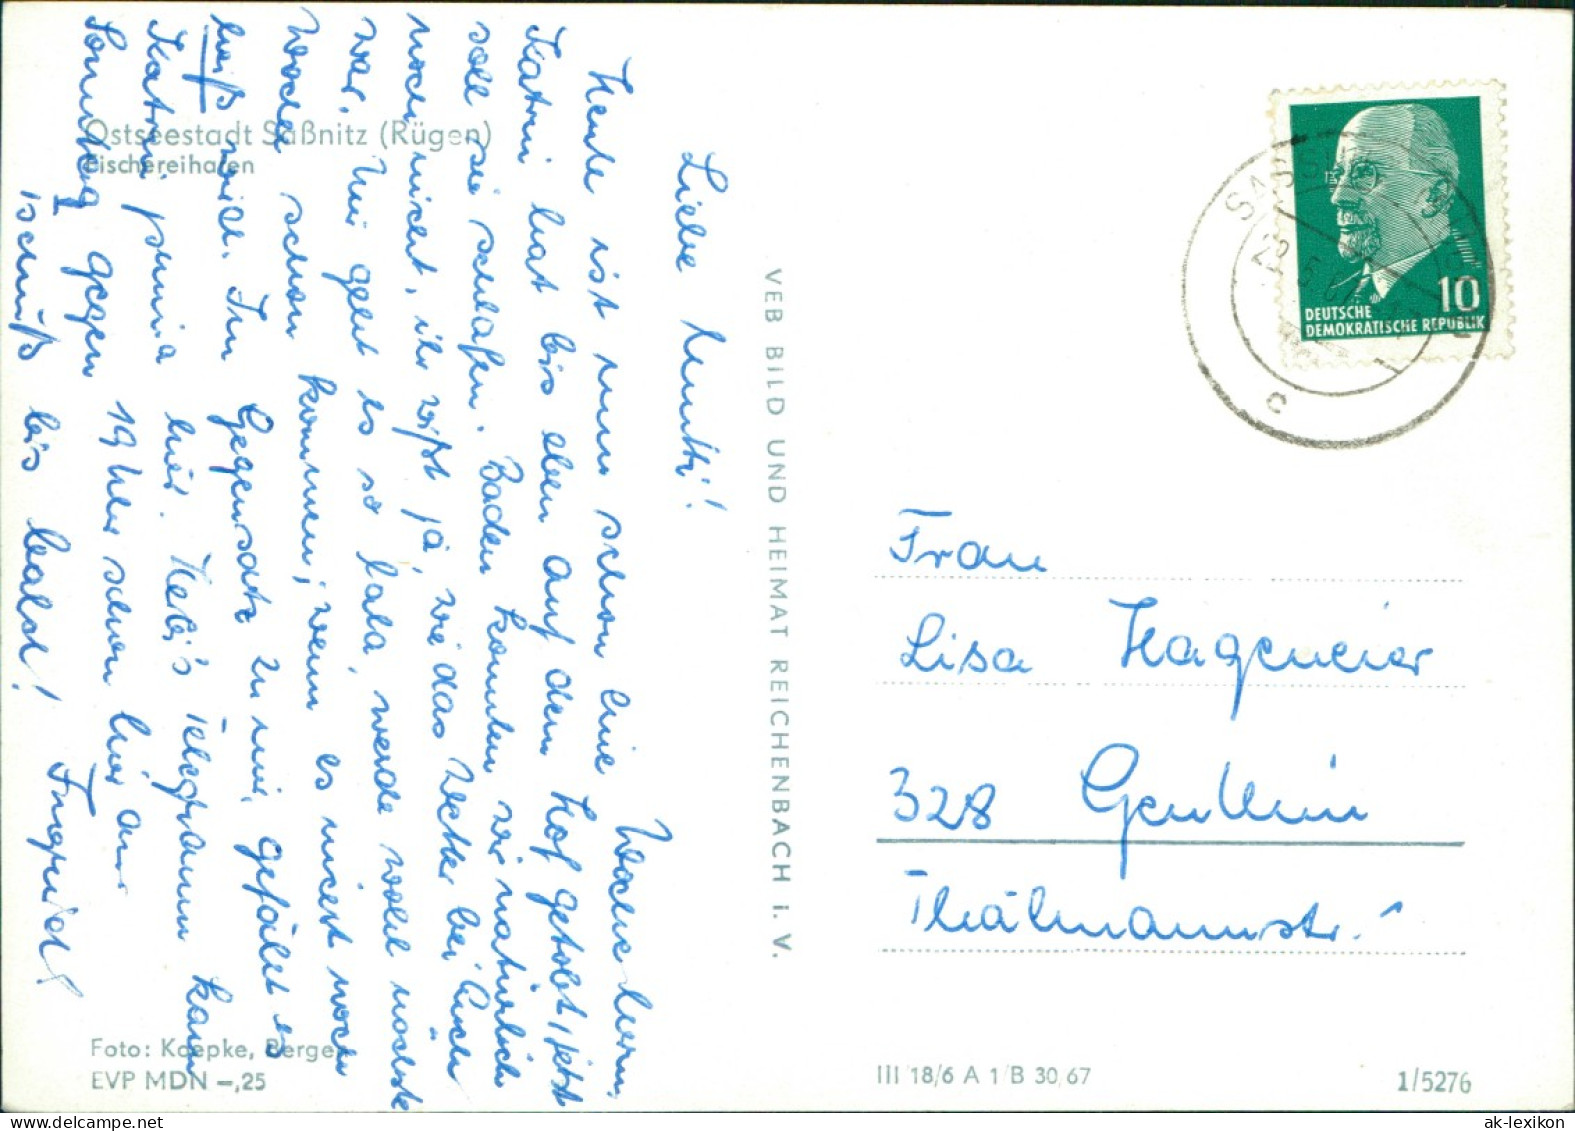 Ostseestadt Saßnitz (Rügen)
Fischereihafen
Liebe Mutti!
Heute ist nun schon eine Woche herum,
Katrin hat bis eben auf dem Hof getobt, jetzt
soll sie schlafen. Baden konnten wir natürlich
noch nicht, ihr wißt ja, wie das Wetter bei Euch
war. Mir geht es so lala, werde wohl nächste
Woche schon kommen, wenn es nicht noch
heiß wird. Im Gegensatz zu mir, gefällt es
Katrin prima hier. Telegramm kam
Sonntag gegen 19 Uhr schon hier an.
Tschüß bis bald! Ingrid
Foto: Koepke, Bergen
EVP MDN –,25
VEB BILD UND HEIMAT REICHENBACH I. V.
SASSNITZ
c
10
DEUTSCHE
DEMOKRATISCHE REPUBLIK
Frau
Lisa Hagemeier
328 Genthin
Thälmannstr.
III/18/6 A 1/B 30/67
1/5276
ak-lexikon